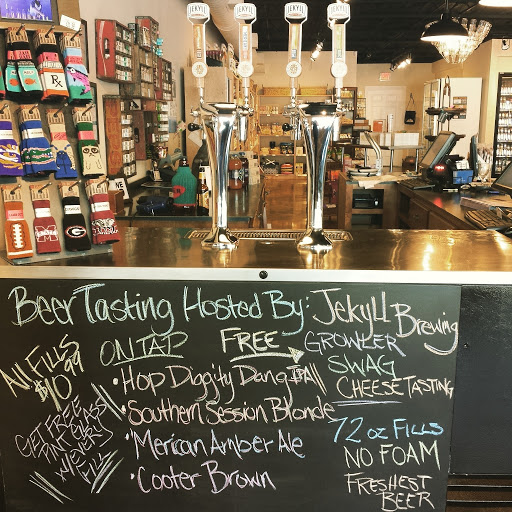 JEKYLL JEKYLL JEKYLL JEKYLL
Rx
Beer Tasting Hosted By: Jekyll Brewing
All Fills
$10 99
ON TAP
• Hop Diggity Dang IPA
• Southern Session Blonde
• 'Merican Amber Ale
• Cooter Brown
FREE
GROWLER
SWAG
CHEESE TASTING
72 oz FILLS
NO FOAM
FRESHEST
BEER
GET FREE
EVERY
FILL